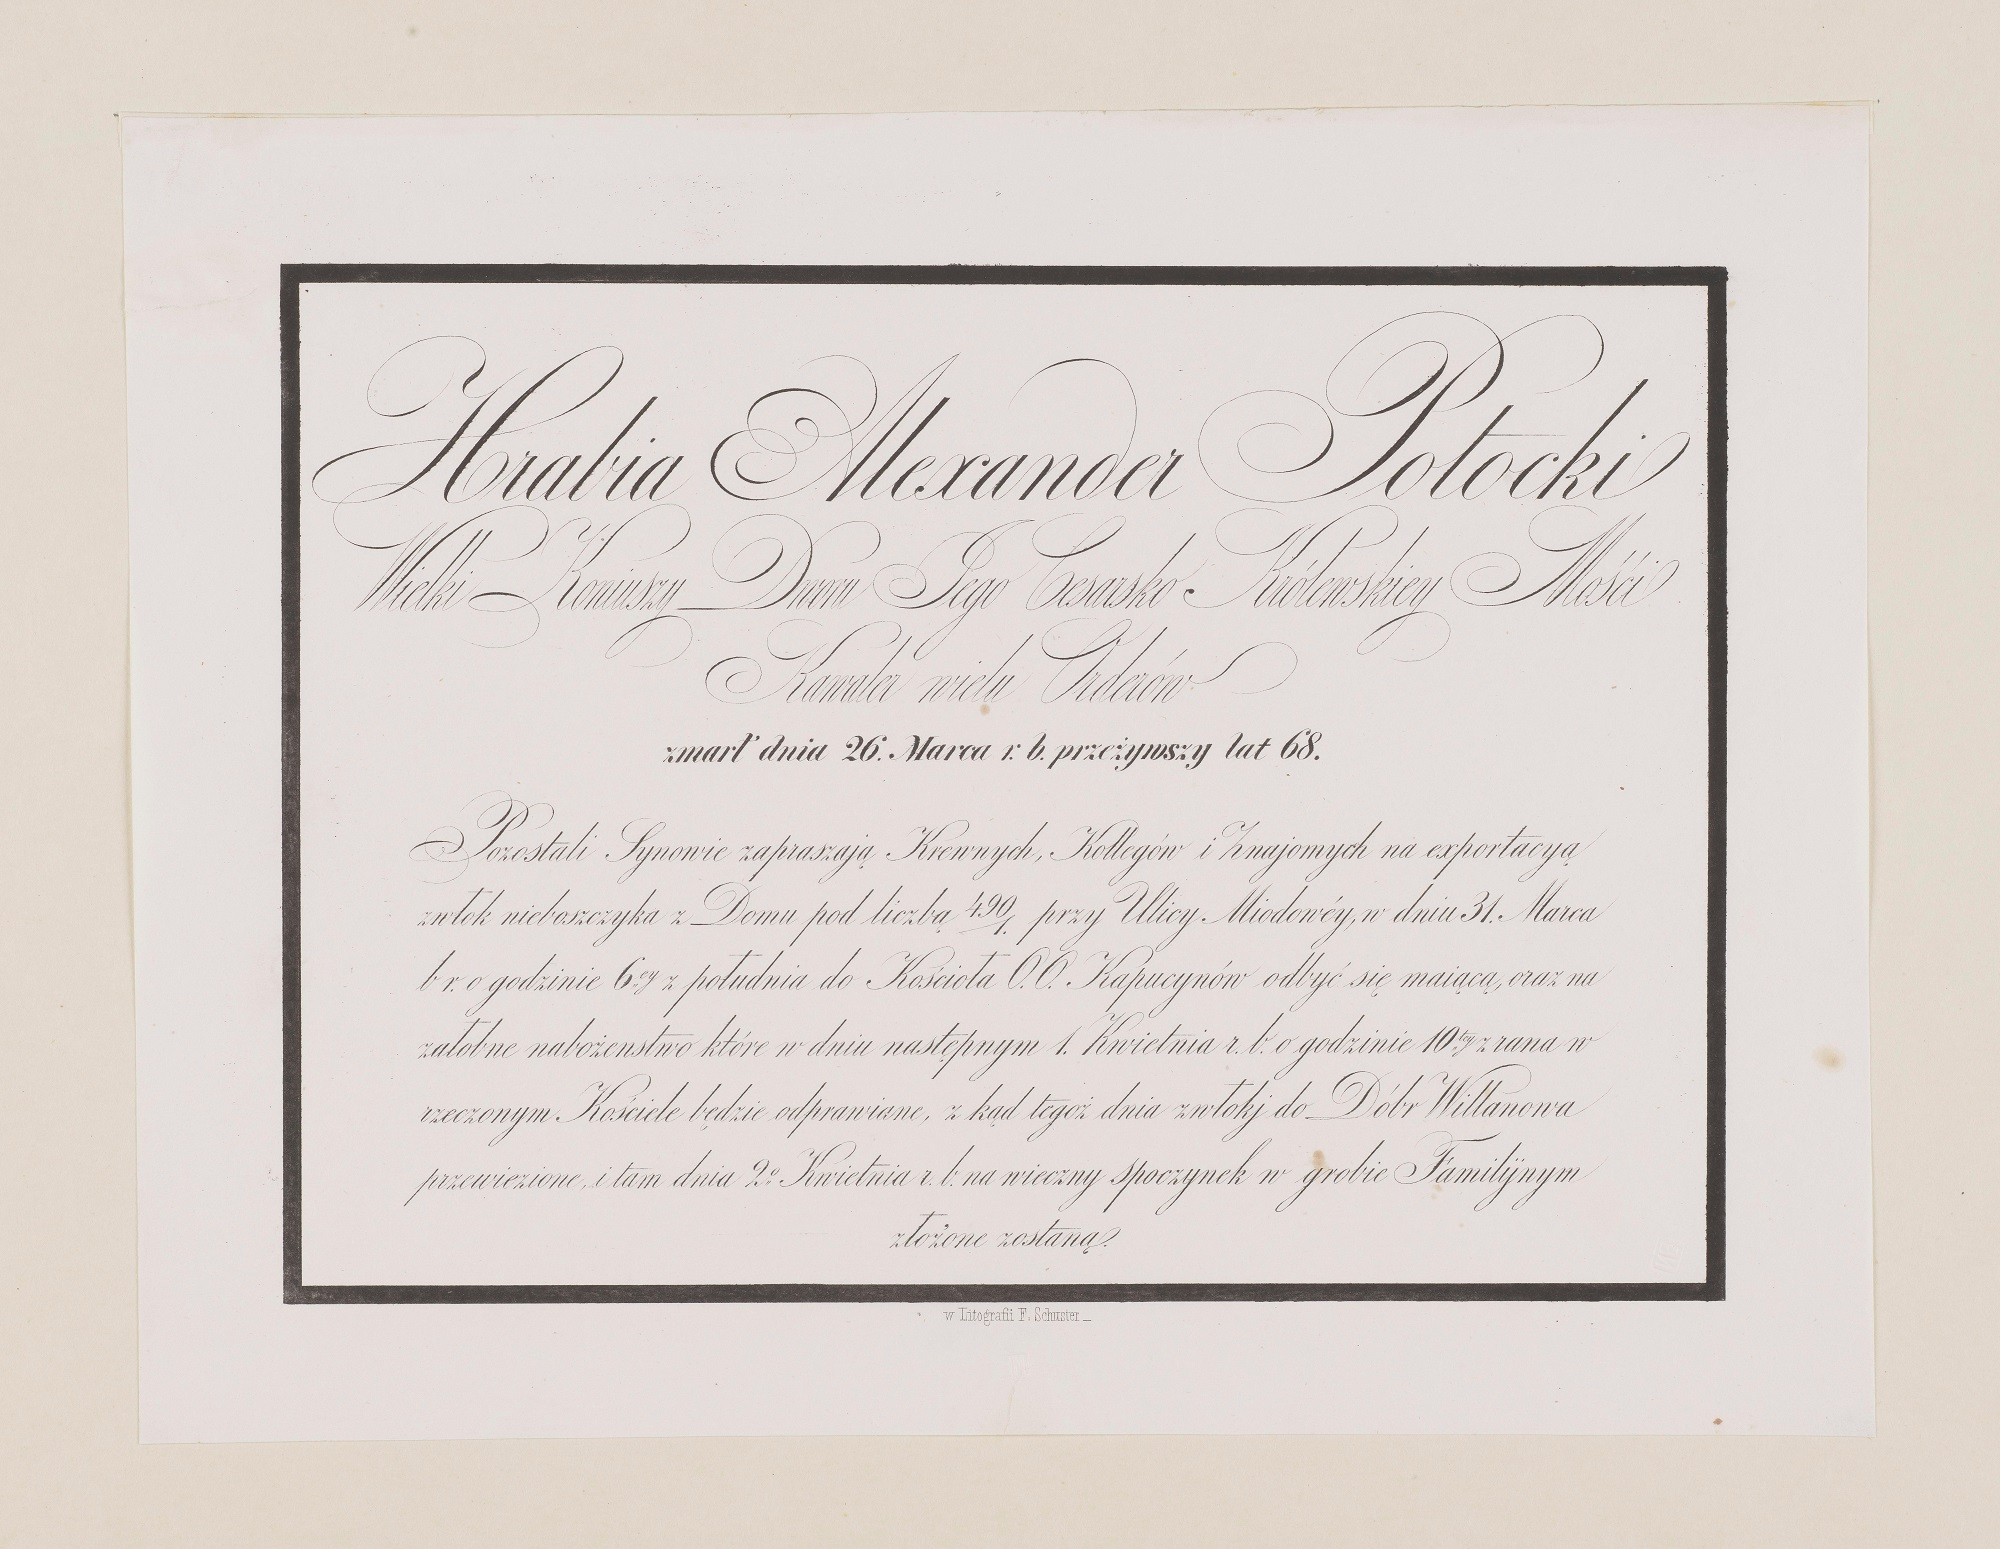 Hrabia Alexander Potocki
Wielki Koniuszy Dworu Jego Cesarsko Królewskiey Mości
Kawaler wielu Orderów
zmarł dnia 26. Marca r. b. przeżywszy lat 68.
Pozostali Synowie zapraszają Krewnych, Kollegów i Znajomych na exportacyą
zwłok nieboszczyka z Domu pod liczbą 490/1. przy Ulicy Miodowéy, w dniu 31. Marca
b r. o godzinie 6ey z południa do Kościoła O.O. Kapucynów odbyć się maiącą, oraz na
załobne nabożenstwo które w dniu następnym 1. Kwietnia r. b. o godzinie 10tey z rana w
rzeczonym Kościele będzie odprawione, z kąd tegoż dnia zwłokj do Dóbr Willanowa
przewiezione, i tam dnia 2o Kwietnia r. b. na wieczny spoczynek w grobie Familijnym
złożone zostaną.
w Litografii F. Schuster